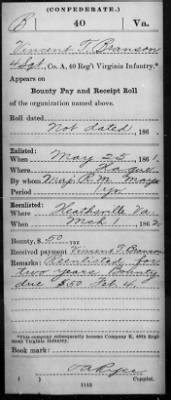 (CONFEDERATE.)
B 40 Va.
Vincent T. Branson
4 Sgt, Co. A, 40 Reg't Virginia Infantry.*
Appears on
Bounty Pay and Receipt Roll
of the organization named above.
Roll dated
Not dated, 186
Enlisted:
When May 25, 1861.
Where
By whom Maj. R. M. Mayo
Period 1 yr
Reenlisted:
Where Heathsville Va
When Mch 1, 1862
Bounty, $50
Received payment Vincent T. Branson
Remarks: Reenlisted for
two years. Bounty
due $50 Feb. 4.
*This company subsequently became Company E, 40th Regiment Virginia Infantry.
Book mark:
Copyist.